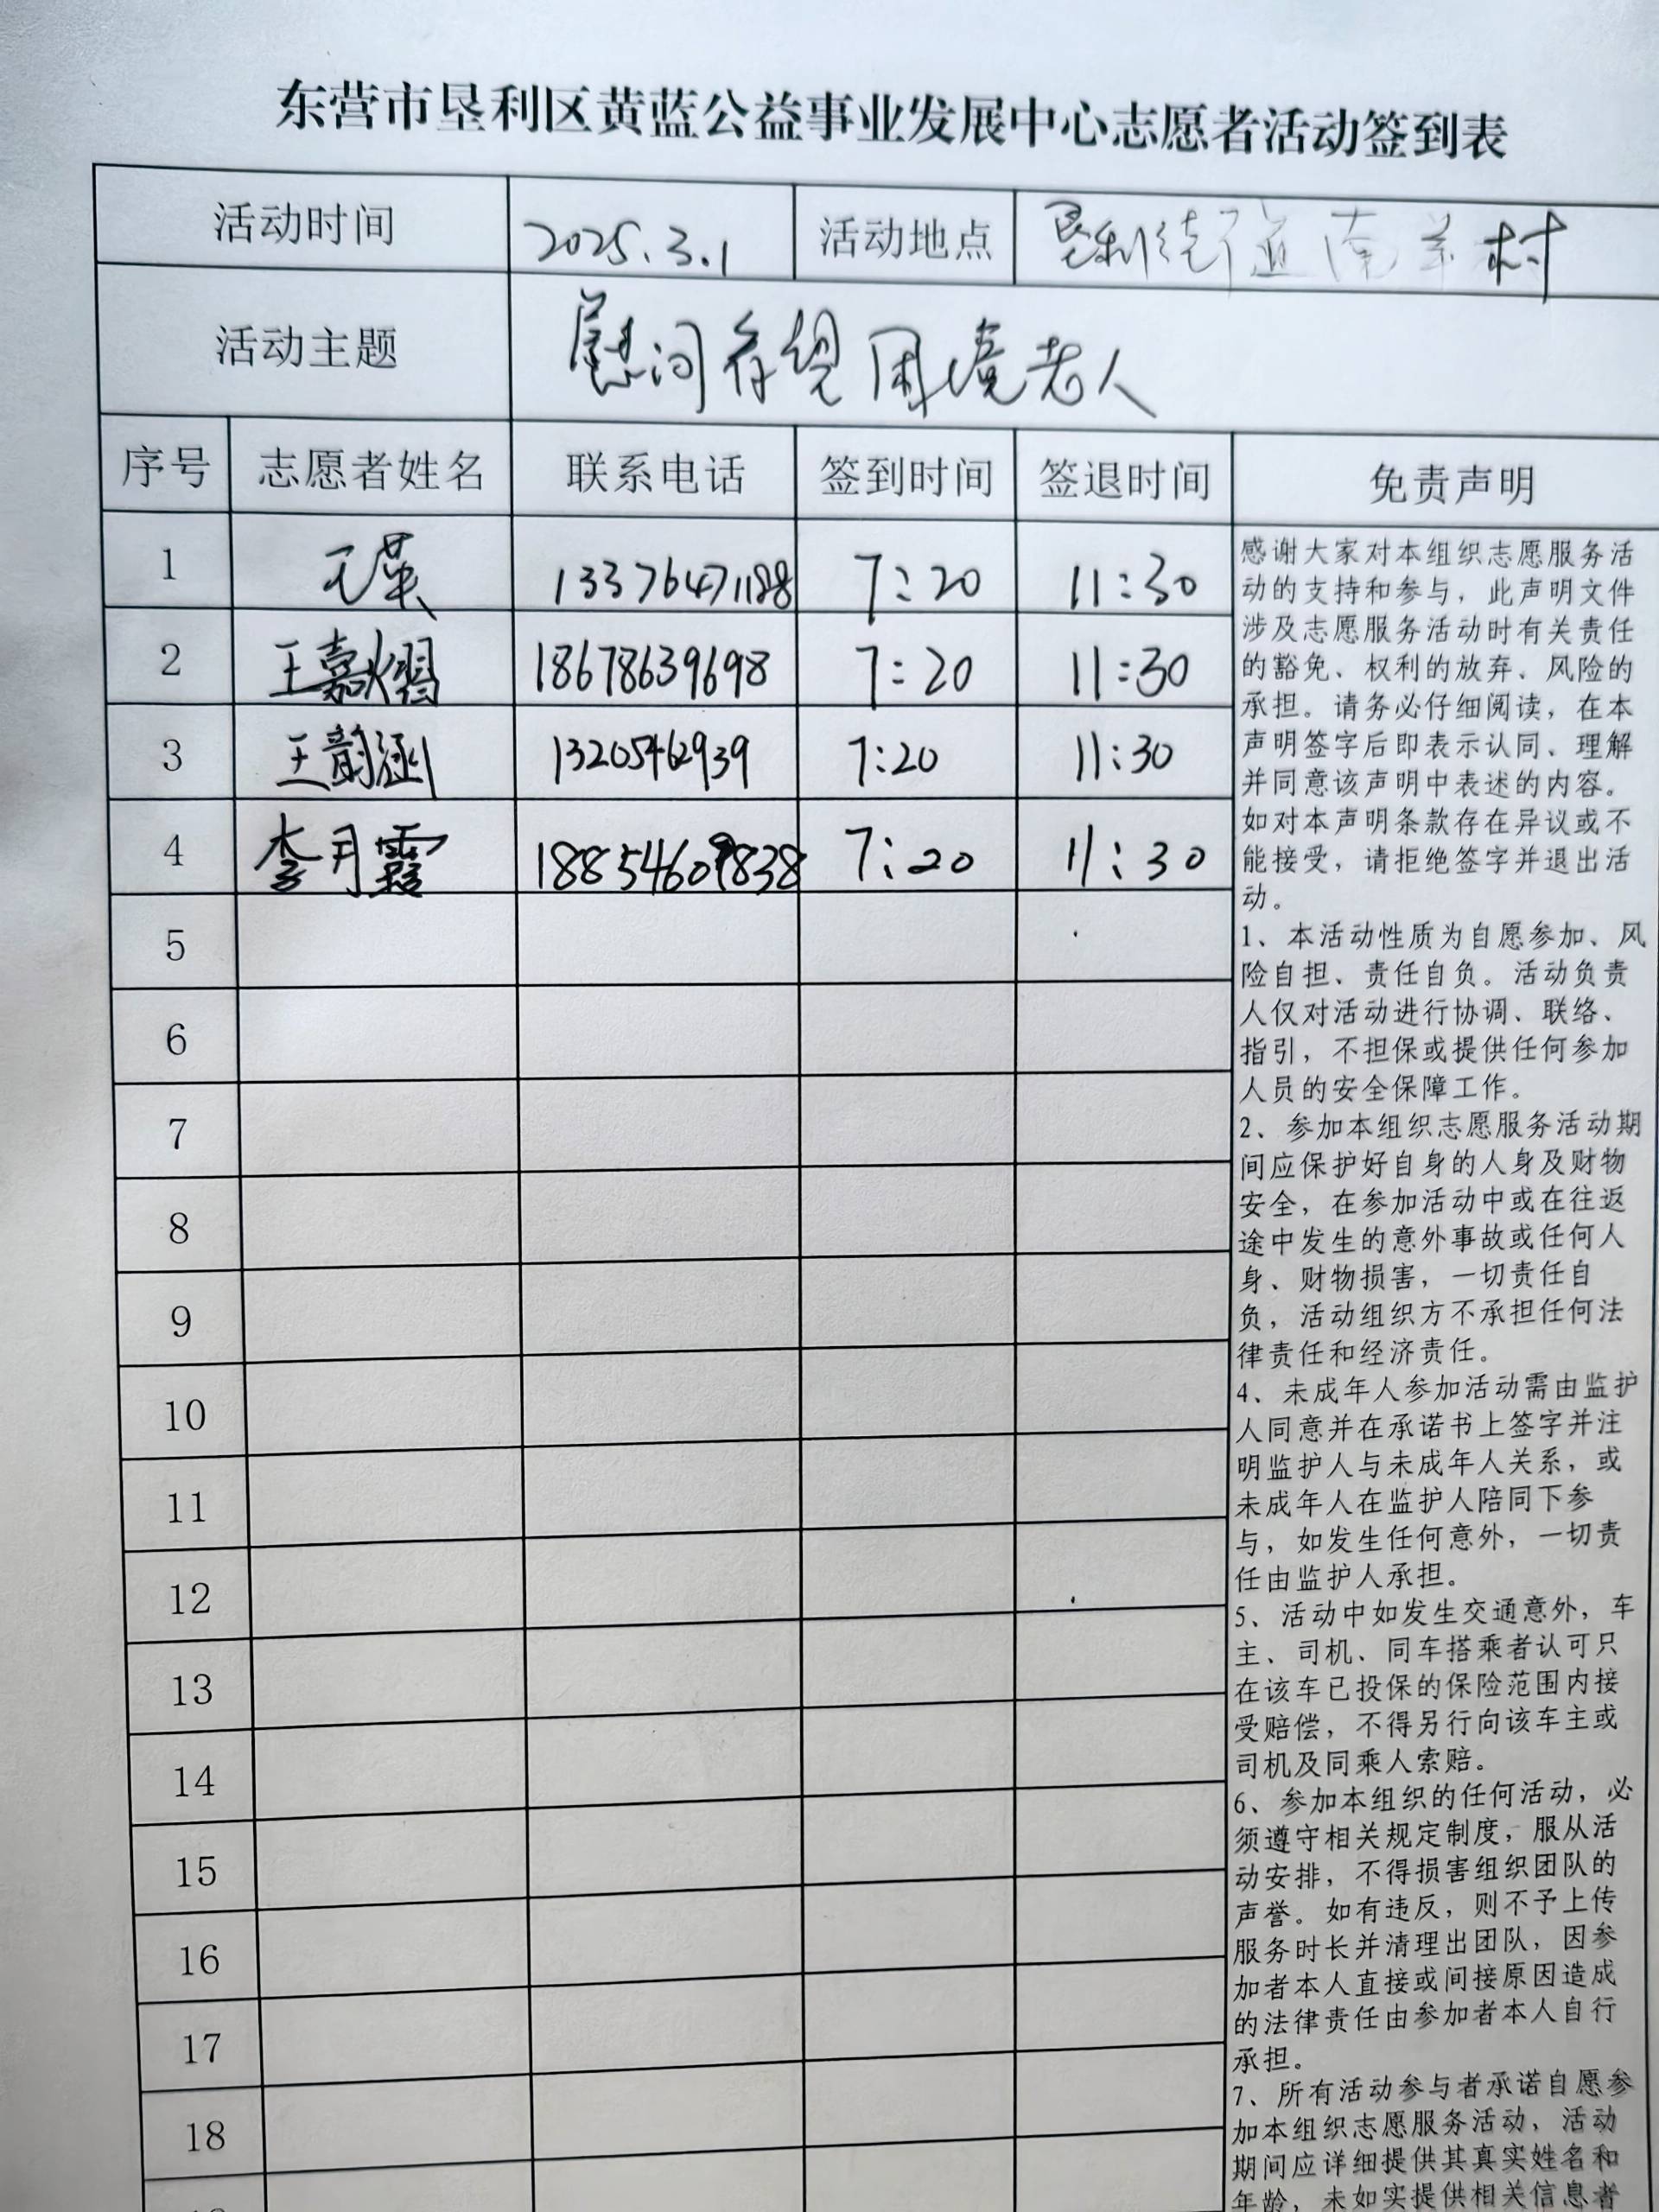 东营市垦利区黄蓝公益事业发展中心志愿者活动签到表
活动时间 2025.3.1 活动地点 垦利街道南羊村
活动主题 慰问 困境老人
序号 志愿者姓名 联系电话 签到时间 签退时间 免责声明
1 王英 13376471188 7:20 11:30
2 王嘉熠 18678639698 7:20 11:30
3 王韵涵 13205462939 7:20 11:30
4 李月霞 18854609838 7:20 11:30
5
6
7
8
9
10
11
12
13
14
15
16
17
18
感谢大家对本组织志愿服务活
动的支持和参与，此声明文件
涉及志愿服务活动时有关责任
的豁免、权利的放弃、风险的
承担。请务必仔细阅读，在本
声明签字后即表示认同、理解
并同意该声明中表述的内容。
如对本声明条款存在异议或不
能接受，请拒绝签字并退出活
动。
1、本活动性质为自愿参加、风
险自担、责任自负。活动负责
人仅对活动进行协调、联络、
指引，不担保或提供任何参加
人员的安全保障工作。
2、参加本组织志愿服务活动期
间应保护好自身的人身及财物
安全，在参加活动中或在往返
途中发生的意外事故或任何人
身、财物损害，一切责任自
负，活动组织方不承担任何法
律责任和经济责任。
4、未成年人参加活动需由监护
人同意并在承诺书上签字并注
明监护人与未成年人关系，或
未成年人在监护人陪同下参
与，如发生任何意外，一切责
任由监护人承担。
5、活动中如发生交通意外，车
主、司机、同车搭乘者认可只
在该车已投保的保险范围内接
受赔偿，不得另行向该车主或
司机及同乘人索赔。
6、参加本组织的任何活动，必
须遵守相关规定制度，服从活
动安排，不得损害组织团队的
声誉。如有违反，则不予上传
服务时长并清理出团队，因参
加者本人直接或间接原因造成
的法律责任由参加者本人自行
承担。
7、所有活动参与者承诺自愿参
加本组织志愿服务活动，活动
期间应详细提供其真实姓名和
年龄，未如实提供相关信息者